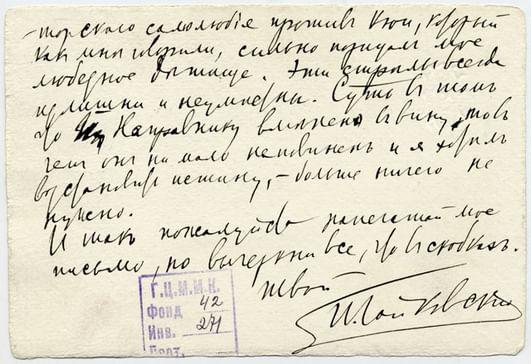 -торскаго самолюбія противъ Кюи, который
какъ мнѣ говорили, сильно порицалъ мое
любезное дѣтище. Эти стрѣлы всегда
излишни и неумѣстны. Суть въ томъ
что Направнику вмѣнено въ вину то въ
чемъ онъ ни мало неповиненъ и я хотѣлъ
возстановить истину, – больше ничего не
нужно.
И такъ пожалуйста напечатай мое
письмо, но вычеркни все, что въ скобкахъ.
Твой
П. Чайковскій
Г.Ц.М.М.К.
Фонд 42
Инв. 271